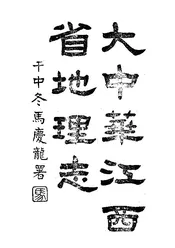 大中華江西
省地理志
中冬馬慶龍署
馬